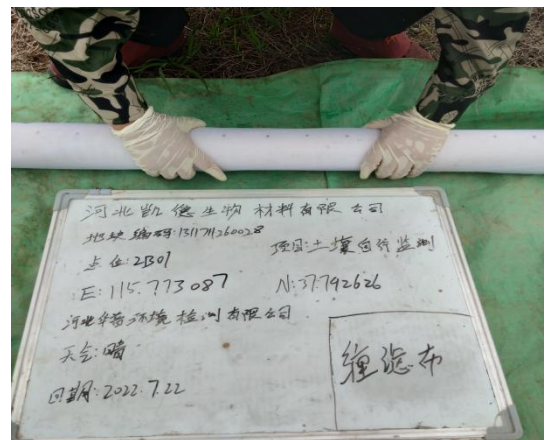 河北凯德生物材料有限公司
地块编码:1311711260028
点位:2B01
项目:土壤自行监测
E:115.773087
N:37.792626
河北华普环境检测有限公司
天气:晴
日期:2022.7.22
缠滤布